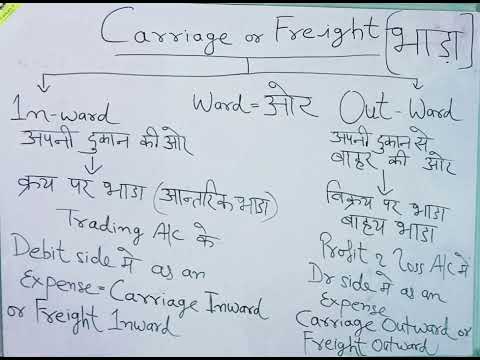 Carriage or Freight [भाड़ा]
In-ward
Ward = ओर
Out-Ward
अपनी दुकान की ओर
क्रय पर भाडा (आन्तरिक भाडा)
Trading A/c के
Debit side मे as an
Expense = Carriage Inward
or Freight Inward
अपनी दुकान से
बाहर की ओर
विक्रय पर भाडा
बाहय भाडा
Profit & Loss A/c में
Dr side मे as an
Expense
Carriage Outward or
Freight Outward